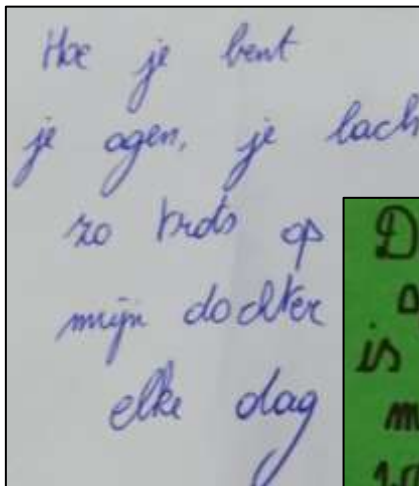 Hoe je bent
je ogen, je lach
zo trots op
mijn dochter
elke dag
D
is
m